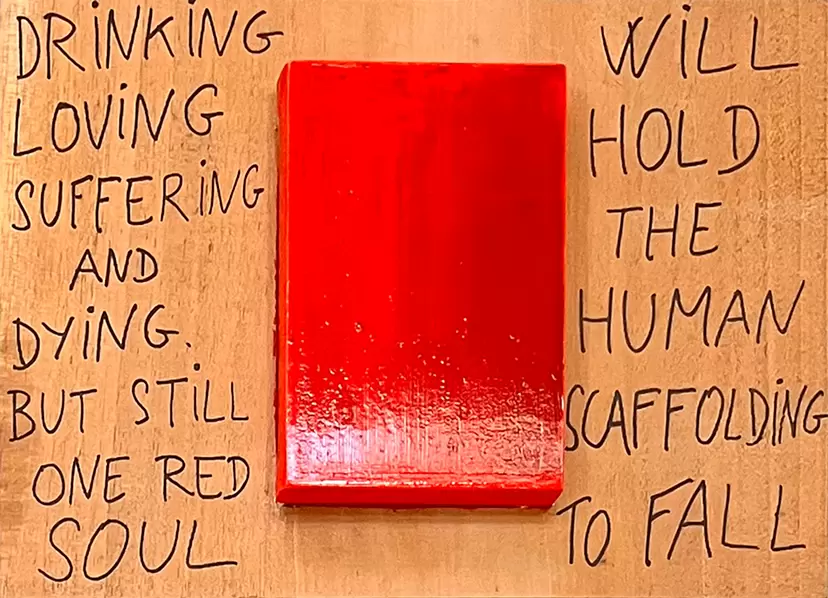 DRiNKiNG
LOViNG
SUFFERiNG
AND
DYiNG.
BUT STiLL
ONE RED
SOUL
WiLL
HOLD
THE
HUMAN
SCAFFOLDiNG
TO FALL